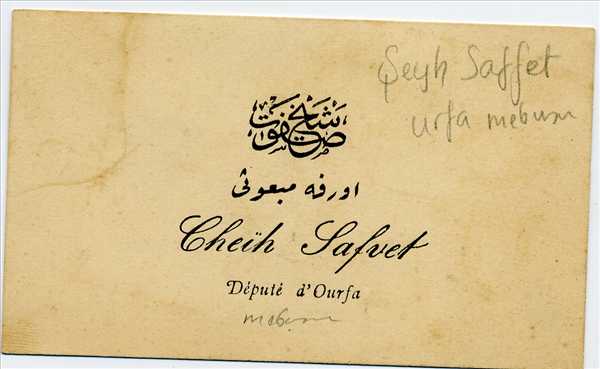 Şeyh Saffet
Urfa mebusu
شیخ صفوت
اورفه مبعوثى
Cheïh Safvet
Député d'Ourfa
mebusu